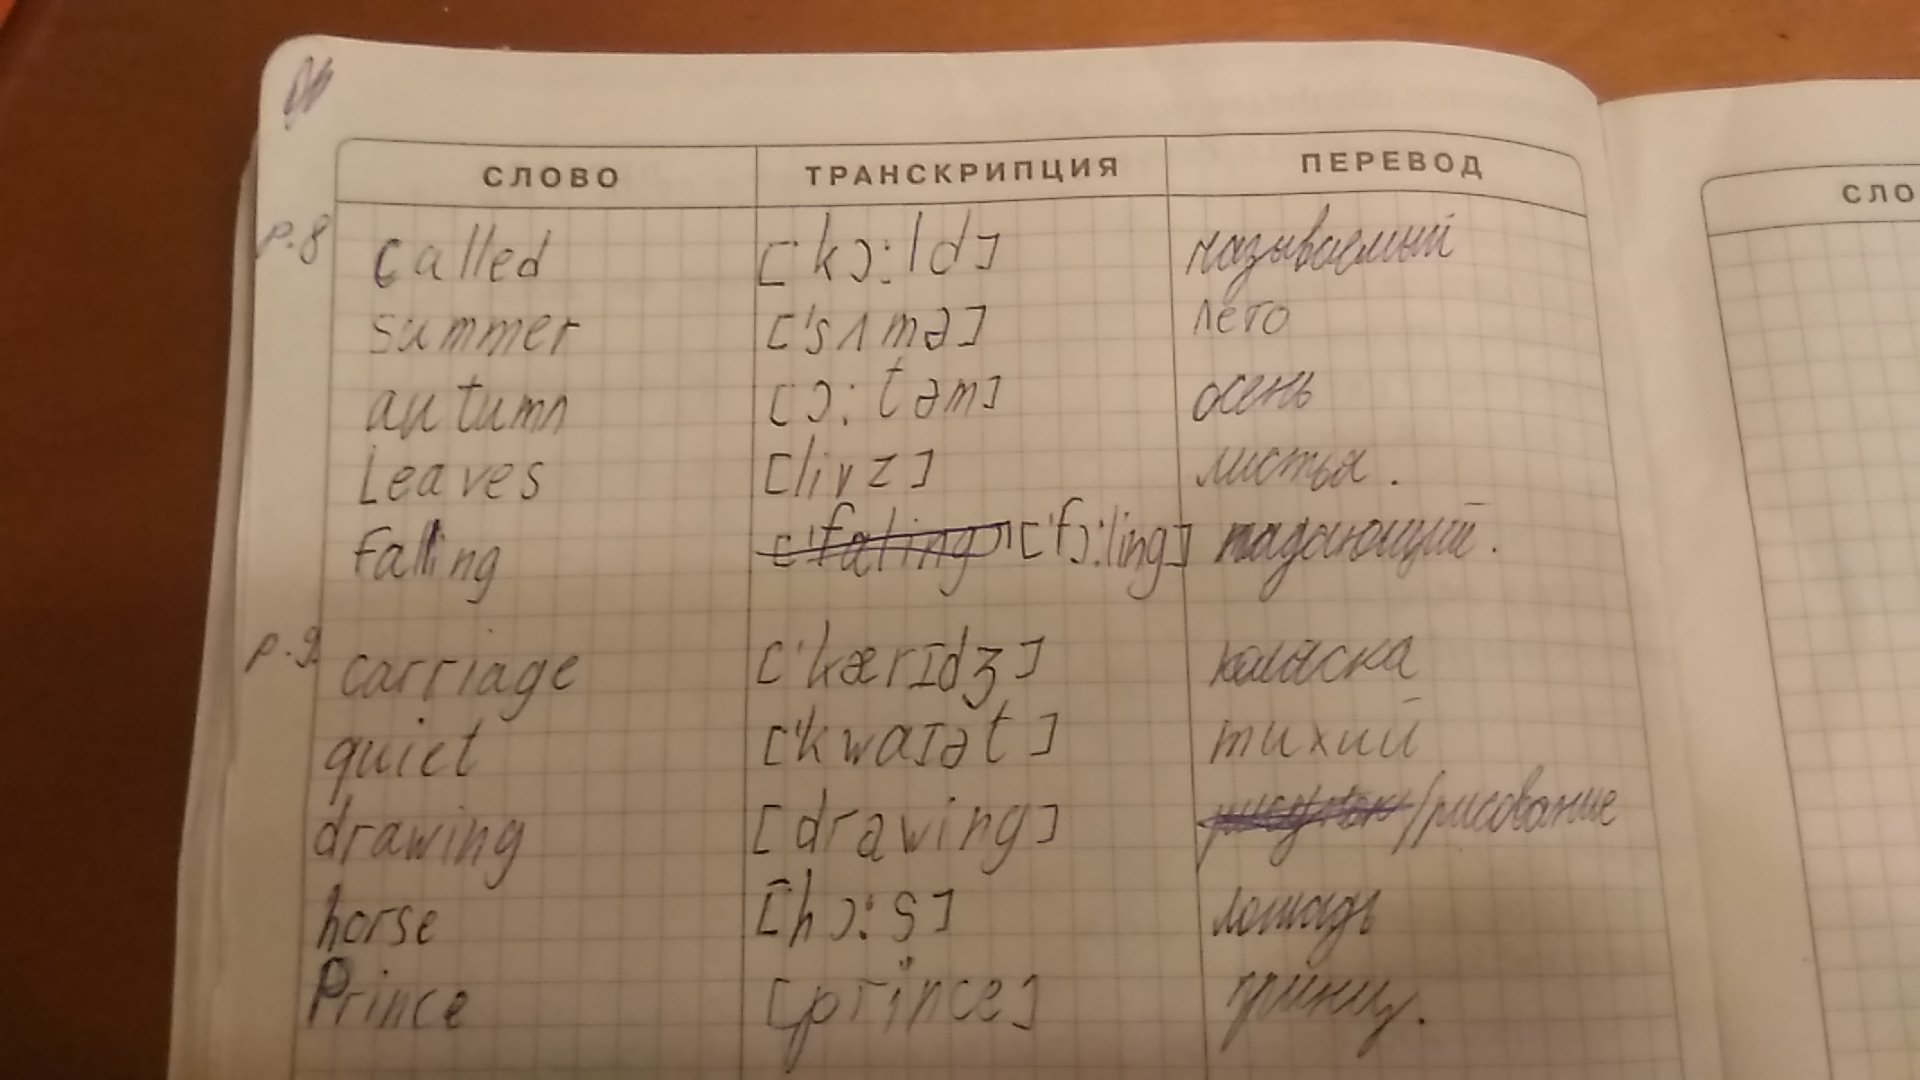 СЛОВО ТРАНСКРИПЦИЯ ПЕРЕВОД СЛО
p.8 called ['kɔ:ld] называемый
summer ['sʌmə] лето
autumn [ɔ:təm] осень
Leaves [livz] листья.
falling ['faling] ['fɔ:ling] падающий.
p.9 carriage ['kærɪdʒ] коляска
quiet ['kwaɪət] тихий
drawing [drawing] рисунок/рисование
horse [hɔ:s] лошадь
Prince [prince] принц.